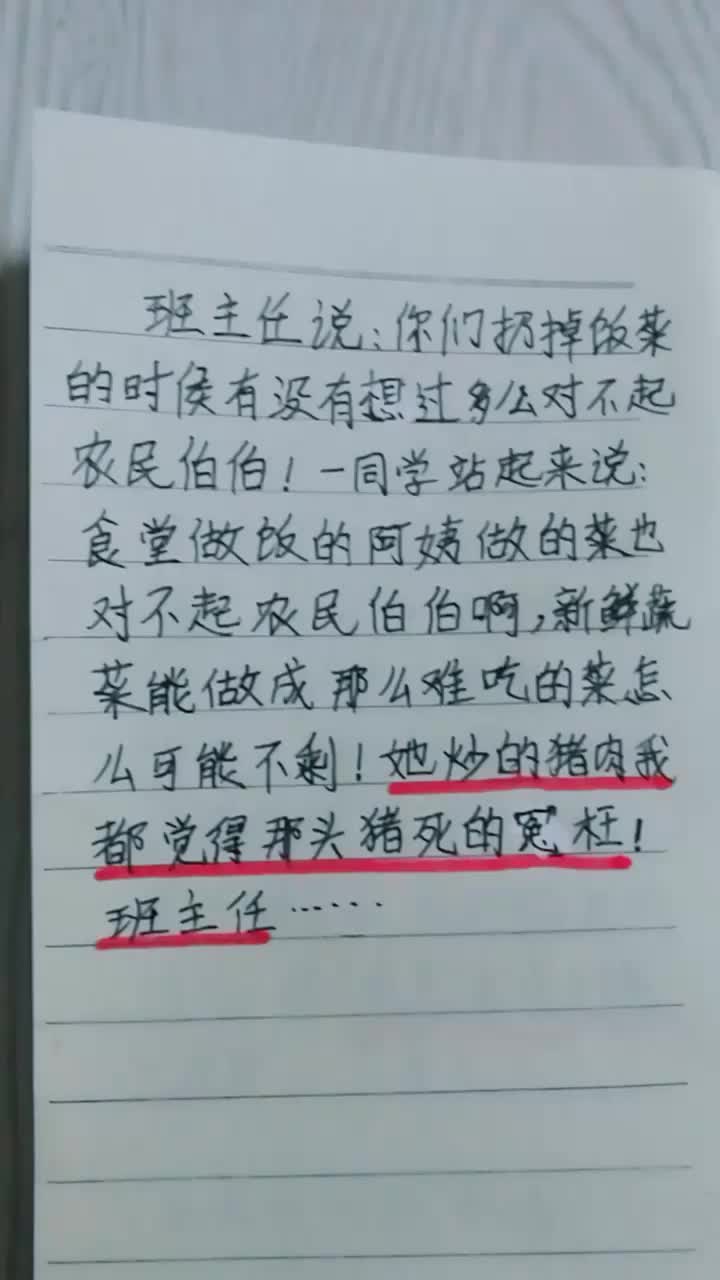 班主任说:你们扔掉饭菜
的时候有没有想过多么对不起
农民伯伯!一同学站起来说:
食堂做饭的阿姨做的菜也
对不起农民伯伯啊,新鲜蔬
菜能做成那么难吃的菜怎
么可能不剩!她炒的猪肉我
都觉得那头猪死的冤枉!
班主任……